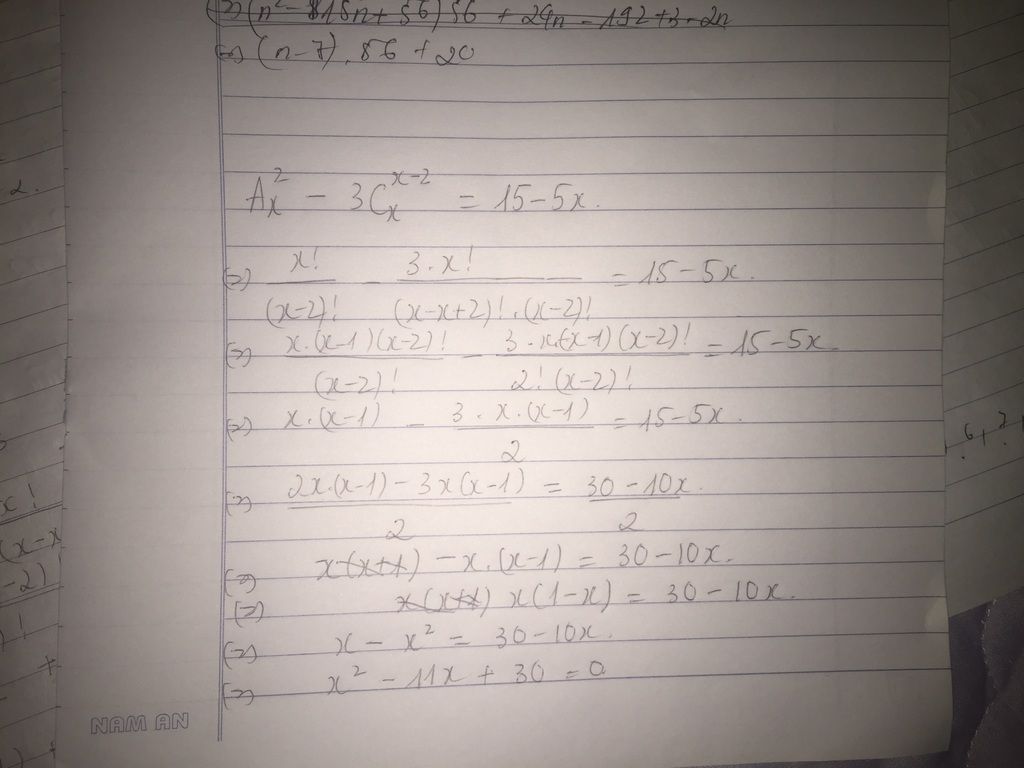 (=) (n² - 15n + 56) 56 + 24n - 192 + 3 - 2n
(=) (n-7) . 56 + 20
A²ₓ - 3Cₓˣ⁻² = 15 - 5x.
(=) x!/(x-2)! - 3.x!/((x-x+2)!.(x-2)!) = 15 - 5x.
(=) x.(x-1)(x-2)!/(x-2)! - 3.x(x-1)(x-2)!/(2!(x-2)!) = 15 - 5x
(=) x.(x-1) - 3.x.(x-1)/2 = 15 - 5x.
(=) (2x.(x-1) - 3x(x-1))/2 = (30 - 10x)/2
(=) - x.(x-1) = 30 - 10x.
(=) x(1-x) = 30 - 10x.
(=) x - x² = 30 - 10x.
(=) x² - 11x + 30 = 0
NAM AN
2.
x!
(x-x
-2)
)!
+